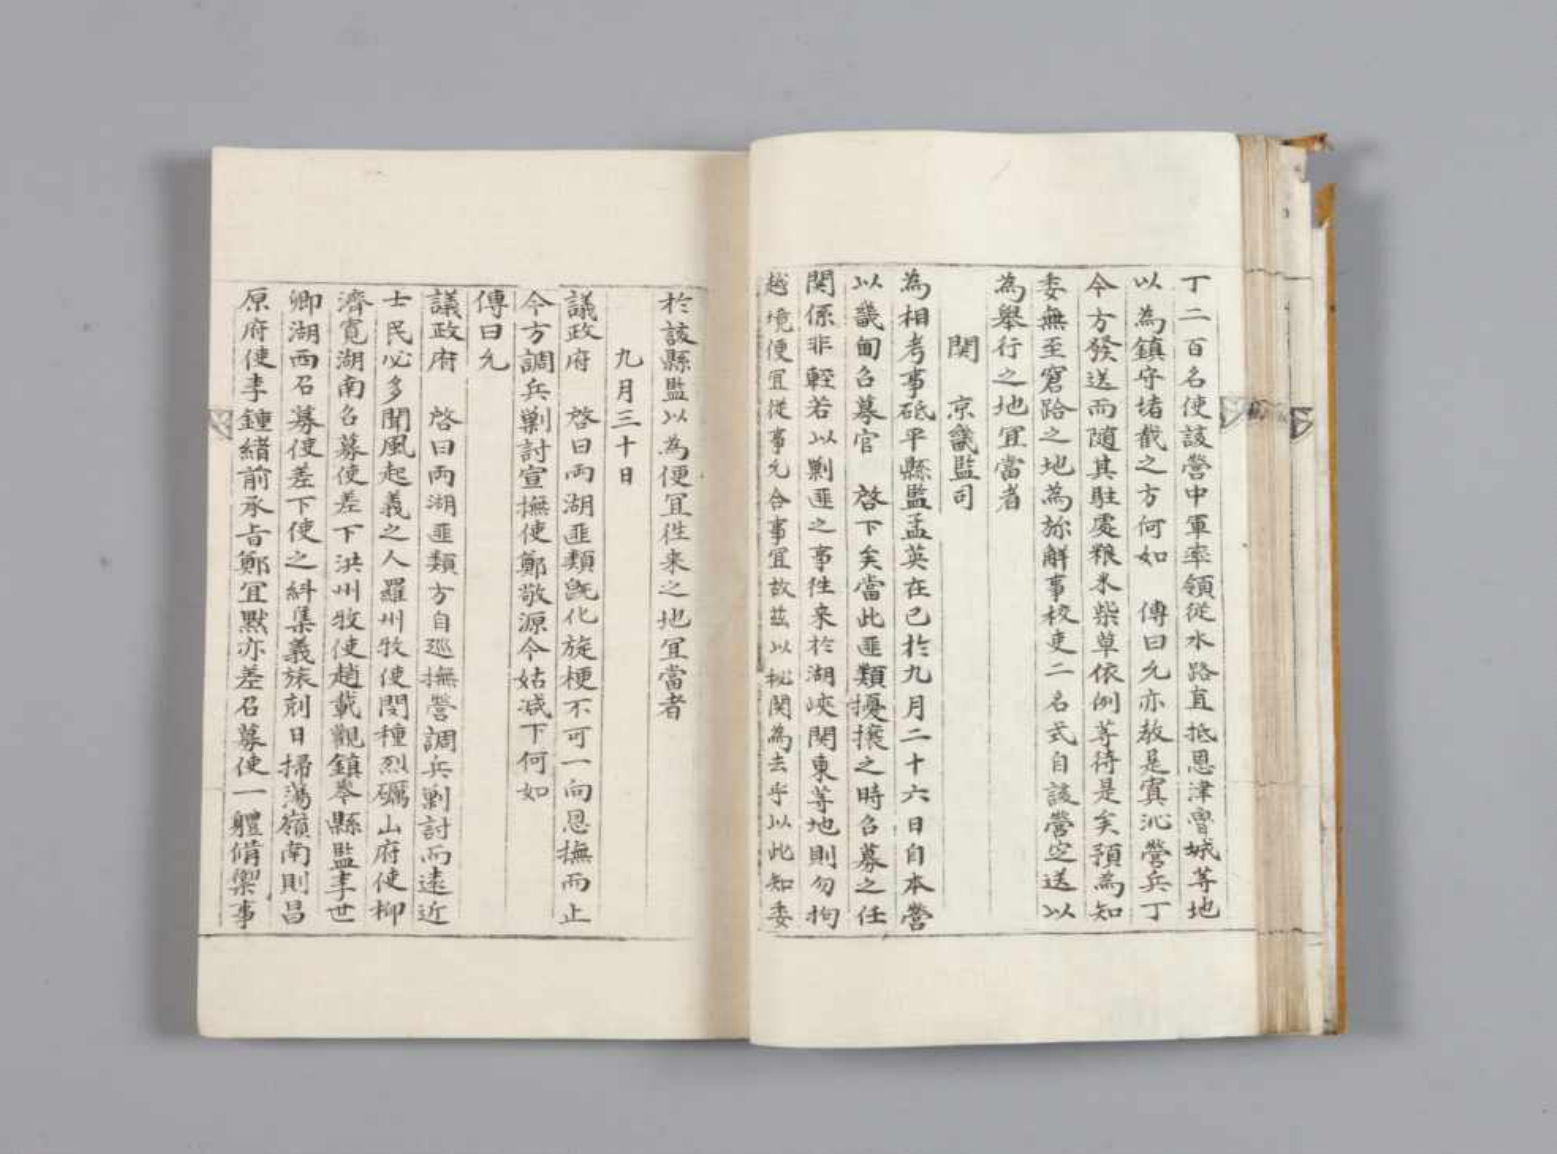 丁二百名使該營中軍率領從水路直抵恩津魯城等地
以為鎮守堵截之方何如 傳曰允亦教是置沁營兵丁
今方發送而隨其駐處粮米柴草依例等待是矣預為知
委無至窘跲之地為旀解事校吏二名式自該營定送以
為舉行之地宜當者
関 京畿監司
為相考事砥平縣監孟英在已於九月二十六日自本營
以畿甸召募官 啓下矣當此匪類擾攘之時召募之任
関係非輕若以剿匪之事徃来於湖峽関東等地則勿拘
越境便宜從事允合事宜故玆以秘関為去乎以此知委
於該縣監以為便宜徃来之地宜當者
九月三十日
議政府 啓曰両湖匪類旣化旋梗不可一向恩撫而止
今方調兵剿討宣撫使鄭敬源今姑減下何如
傳曰允
議政府 啓曰両湖匪類方自巡撫營調兵剿討而遠近
士民必多聞風起義之人羅州牧使閔種烈礪山府使柳
濟寬湖南召募使差下洪州牧使趙載觀鎮岑縣監李世
卿湖西召募使差下使之糾集義旅刻日掃蕩嶺南則昌
原府使李鍾緒前承旨鄭宜默亦差召募使一軆備禦事